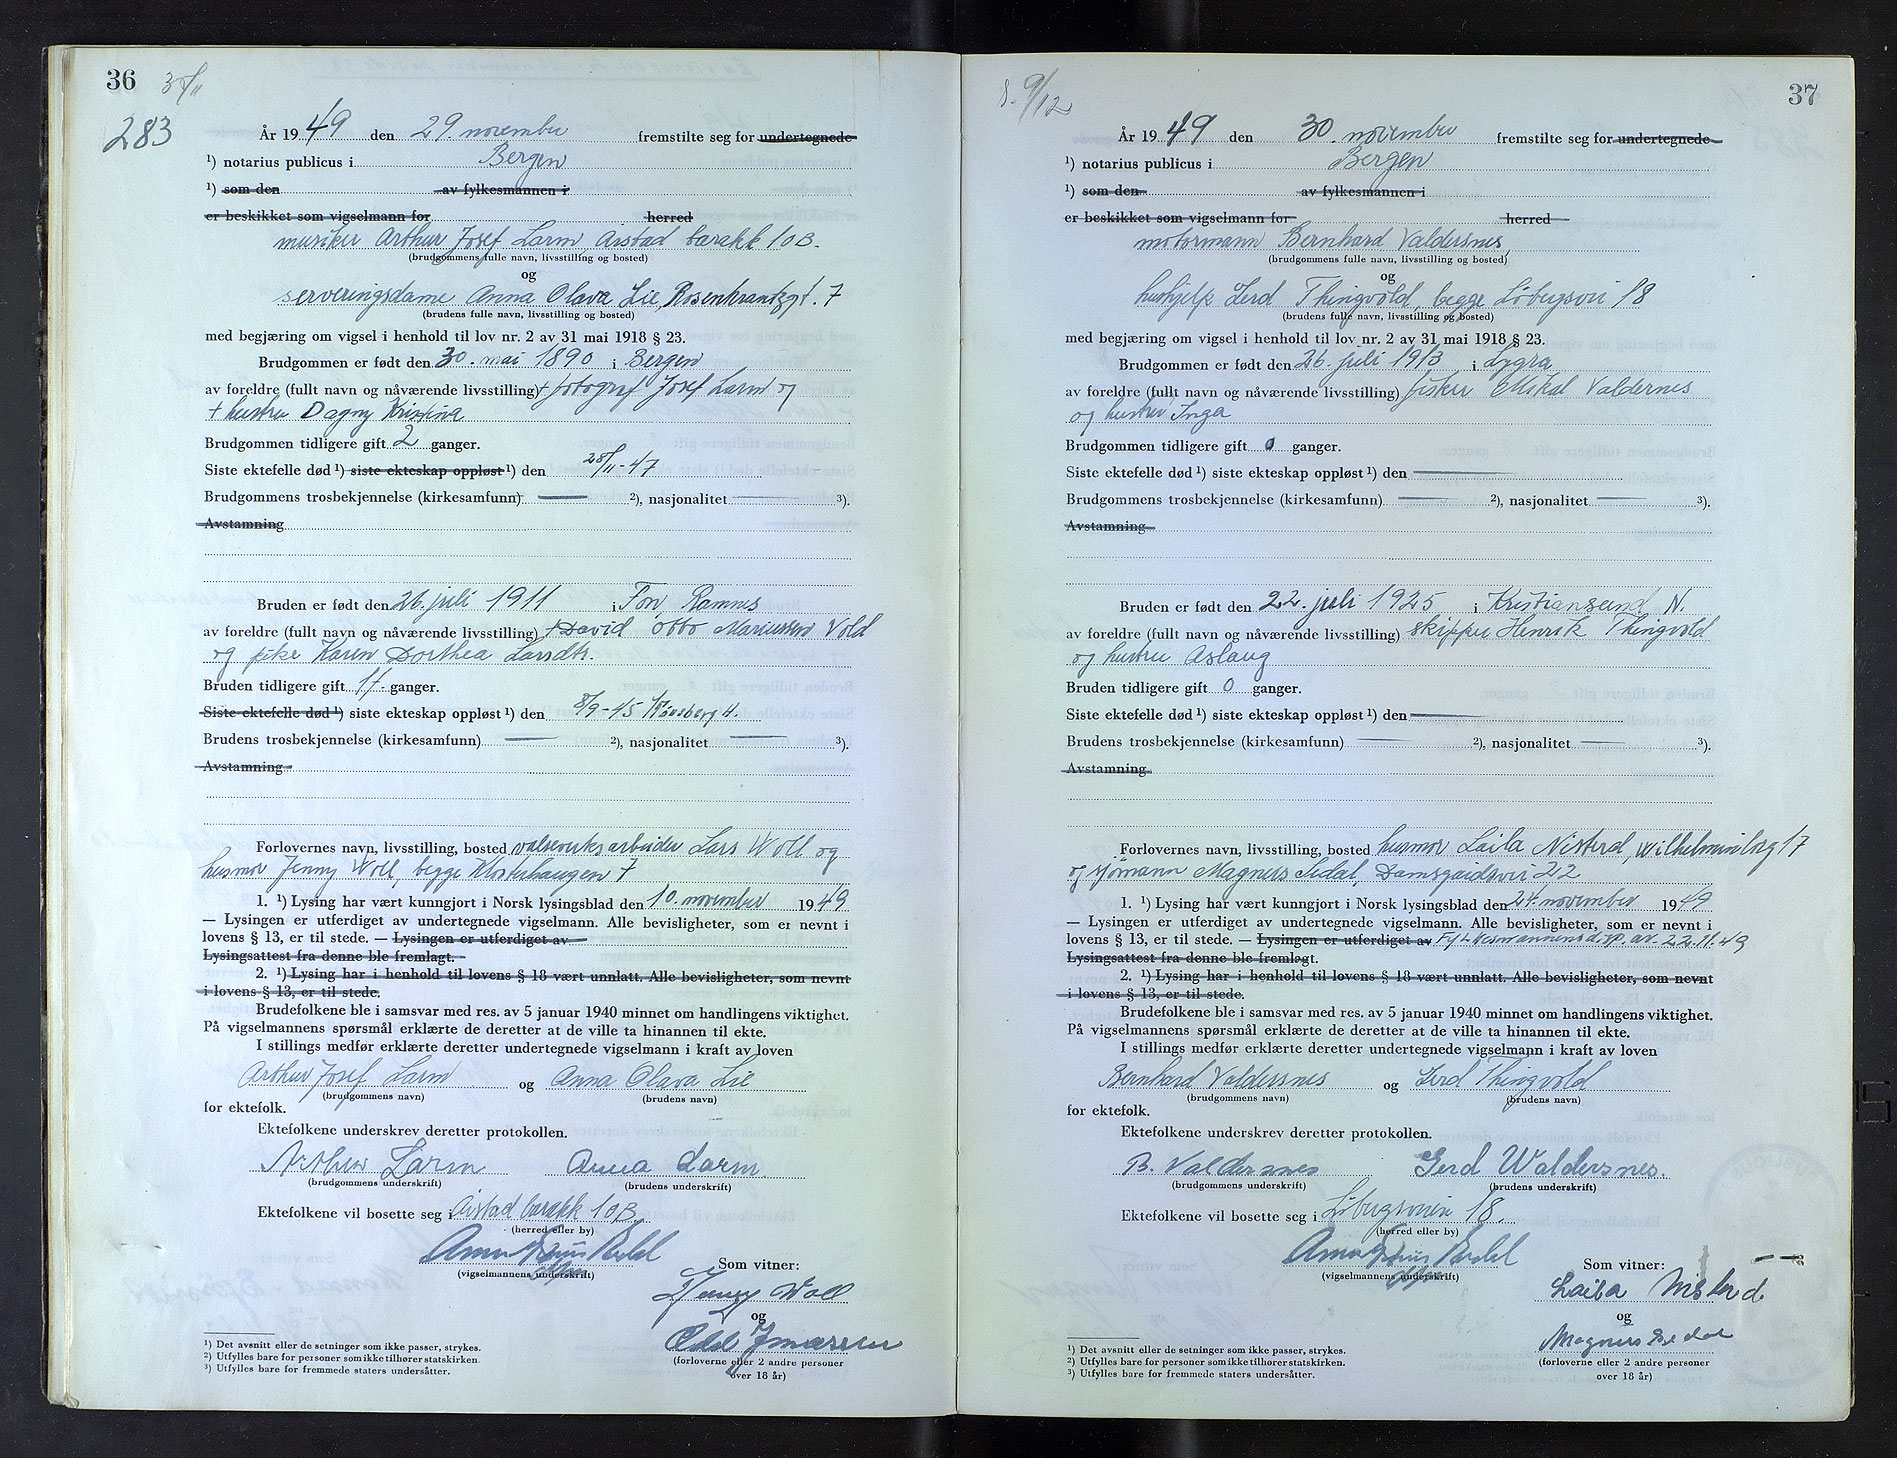 36
283
År 1949 den 29. november fremstilte seg for undertegnede
¹) notarius publicus i Bergen
¹) som den av fylkesmannen i
er beskikket som vigselmann for herred
musiker Arthur Josef Larm Årstad barakk 10B.
(brudgommens fulle navn, livsstilling og bosted)
og
serveringsdame Anna Olava Lie, Rosenkrantzgt. 7
(brudens fulle navn, livsstilling og bosted)
med begjæring om vigsel i henhold til lov nr. 2 av 31 mai 1918 § 23.
Brudgommen er født den 30. mai 1890 i Bergen
av foreldre (fullt navn og nåværende livsstilling) + fotograf Josef Larm og
+ hustru Dagny Kristina
Brudgommen tidligere gift 2 ganger.
Siste ektefelle død ¹) siste ekteskap oppløst ¹) den 28/11-47
Brudgommens trosbekjennelse (kirkesamfunn) ²), nasjonalitet ³).
Avstamning
Bruden er født den 26. juli 1911 i Fon, Ramnes
av foreldre (fullt navn og nåværende livsstilling) + David Otto Mariussen Vold
og pike Karen Dorthea Larsdtr.
Bruden tidligere gift 1 ganger.
Siste ektefelle død ¹) siste ekteskap oppløst ¹) den 8/9-45
Brudens trosbekjennelse (kirkesamfunn) ²), nasjonalitet ³).
Avstamning
Forlovernes navn, livsstilling, bosted valseverksarbeider Lars Woll og
husmor Jenny Woll, begge Klosterhaugen 7
1. ¹) Lysing har vært kunngjort i Norsk lysingsblad den 10. november 1949
— Lysingen er utferdiget av undertegnede vigselmann. Alle bevisligheter, som er nevnt i
lovens § 13, er til stede. — Lysingen er utferdiget av
Lysingsattest fra denne ble fremlagt.
2. ¹) Lysing har i henhold til lovens § 18 vært unnlatt. Alle bevisligheter, som nevnt
i lovens § 13, er til stede.
Brudefolkene ble i samsvar med res. av 5 januar 1940 minnet om handlingens viktighet.
På vigselmannens spørsmål erklærte de deretter at de ville ta hinannen til ekte.
I stillings medfør erklærte deretter undertegnede vigselmann i kraft av loven
Arthur Josef Larm og Anna Olava Lie
(brudgommens navn) (brudens navn)
for ektefolk.
Ektefolkene underskrev deretter protokollen.
Arthur Larm Anna Larm
(brudgommens underskrift) (brudens underskrift)
Ektefolkene vil bosette seg i Årstad barakk 10B
(herred eller by)
(vigselmannens underskrift)
Som vitner:
Jenny Woll
og
(forloverne eller 2 andre personer
over 18 år)
¹) Det avsnitt eller de setninger som ikke passer, strykes.
²) Utfylles bare for personer som ikke tilhører statskirken.
³) Utfylles bare for fremmede staters undersåtter.
9/12
37
År 1949 den 30. november fremstilte seg for undertegnede
¹) notarius publicus i Bergen
¹) som den av fylkesmannen i
er beskikket som vigselmann for herred
motormann Bernhard Valdersnes
(brudgommens fulle navn, livsstilling og bosted)
og
hushjelp Gerd Thingvold, begge Løbergsvei 18
(brudens fulle navn, livsstilling og bosted)
med begjæring om vigsel i henhold til lov nr. 2 av 31 mai 1918 § 23.
Brudgommen er født den 26. juli 1913 i Lygra
av foreldre (fullt navn og nåværende livsstilling) fisker Mikal Valdernes
og hustru Inga
Brudgommen tidligere gift 0 ganger.
Siste ektefelle død ¹) siste ekteskap oppløst ¹) den
Brudgommens trosbekjennelse (kirkesamfunn) ²), nasjonalitet ³).
Avstamning
Bruden er født den 22. juli 1925 i Kristiansund N.
av foreldre (fullt navn og nåværende livsstilling) skipper Henrik Thingvold
og hustru Aslaug
Bruden tidligere gift 0 ganger.
Siste ektefelle død ¹) siste ekteskap oppløst ¹) den
Brudens trosbekjennelse (kirkesamfunn) ²), nasjonalitet ³).
Avstamning
Forlovernes navn, livsstilling, bosted husmor Laila Nisterd, 17
og sjømann Magnus Sedal, Damsgårdsvei 22
1. ¹) Lysing har vært kunngjort i Norsk lysingsblad den 24. november 1949
— Lysingen er utferdiget av undertegnede vigselmann. Alle bevisligheter, som er nevnt i
lovens § 13, er til stede. — Lysingen er utferdiget av Fylkesmannens disp. av. 22.11.49
Lysingsattest fra denne ble fremlagt.
2. ¹) Lysing har i henhold til lovens § 18 vært unnlatt. Alle bevisligheter, som nevnt
i lovens § 13, er til stede.
Brudefolkene ble i samsvar med res. av 5 januar 1940 minnet om handlingens viktighet.
På vigselmannens spørsmål erklærte de deretter at de ville ta hinannen til ekte.
I stillings medfør erklærte deretter undertegnede vigselmann i kraft av loven
Bernhard Valdersnes og Gerd Thingvold
(brudgommens navn) (brudens navn)
for ektefolk.
Ektefolkene underskrev deretter protokollen.
B. Valdersnes Gerd Waldersnes.
(brudgommens underskrift) (brudens underskrift)
Ektefolkene vil bosette seg i Løbergsveien 18.
(herred eller by)
(vigselmannens underskrift)
Som vitner:
Laila
og
Magnus Sedal
(forloverne eller 2 andre personer
over 18 år)
¹) Det avsnitt eller de setninger som ikke passer, strykes.
²) Utfylles bare for personer som ikke tilhører statskirken.
³) Utfylles bare for fremmede staters undersåtter.